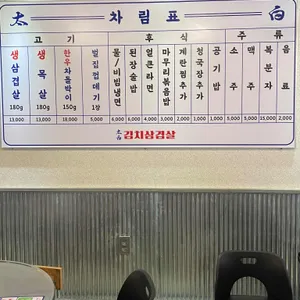 太 차림표 白
고기 후식 주류
생삼겹살 180g 13,000
생목살 180g 13,000
한우차돌박이 150g 18,000
벌집껍데기 1장
물/비빔냉면 6,000
된장술밥 6,000
얼큰라면 4,000
마무리볶음밥 3,000
계란찜추가 2,000
청국장추가 1,000
공기밥 1,000
소주 5,000
맥주 5,000
복분자 15,000
음료 2,000
太白 김치삼겹살